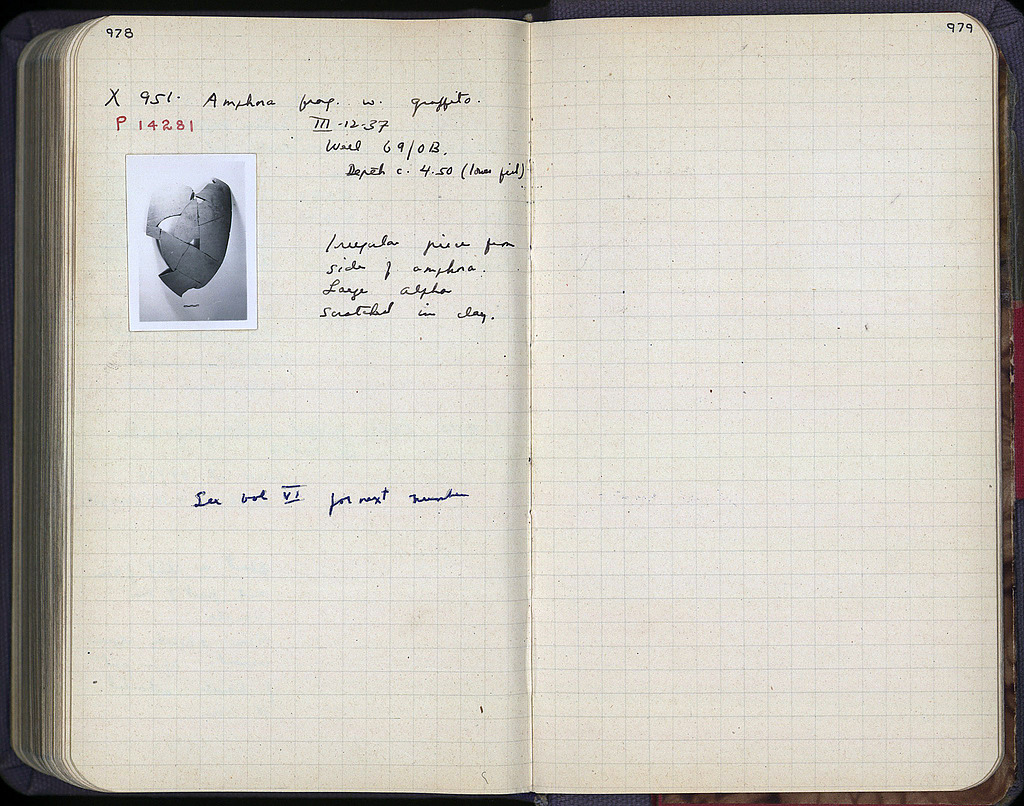 978
X 951. Amphora frag. w. graffito.
P 14281
III-12-37
Well 69/OB.
Depth c. 4.50 (lower fill)
Irregular piece from
side of amphora.
Large alpha
scratched in clay.
See vol VI for next number
979